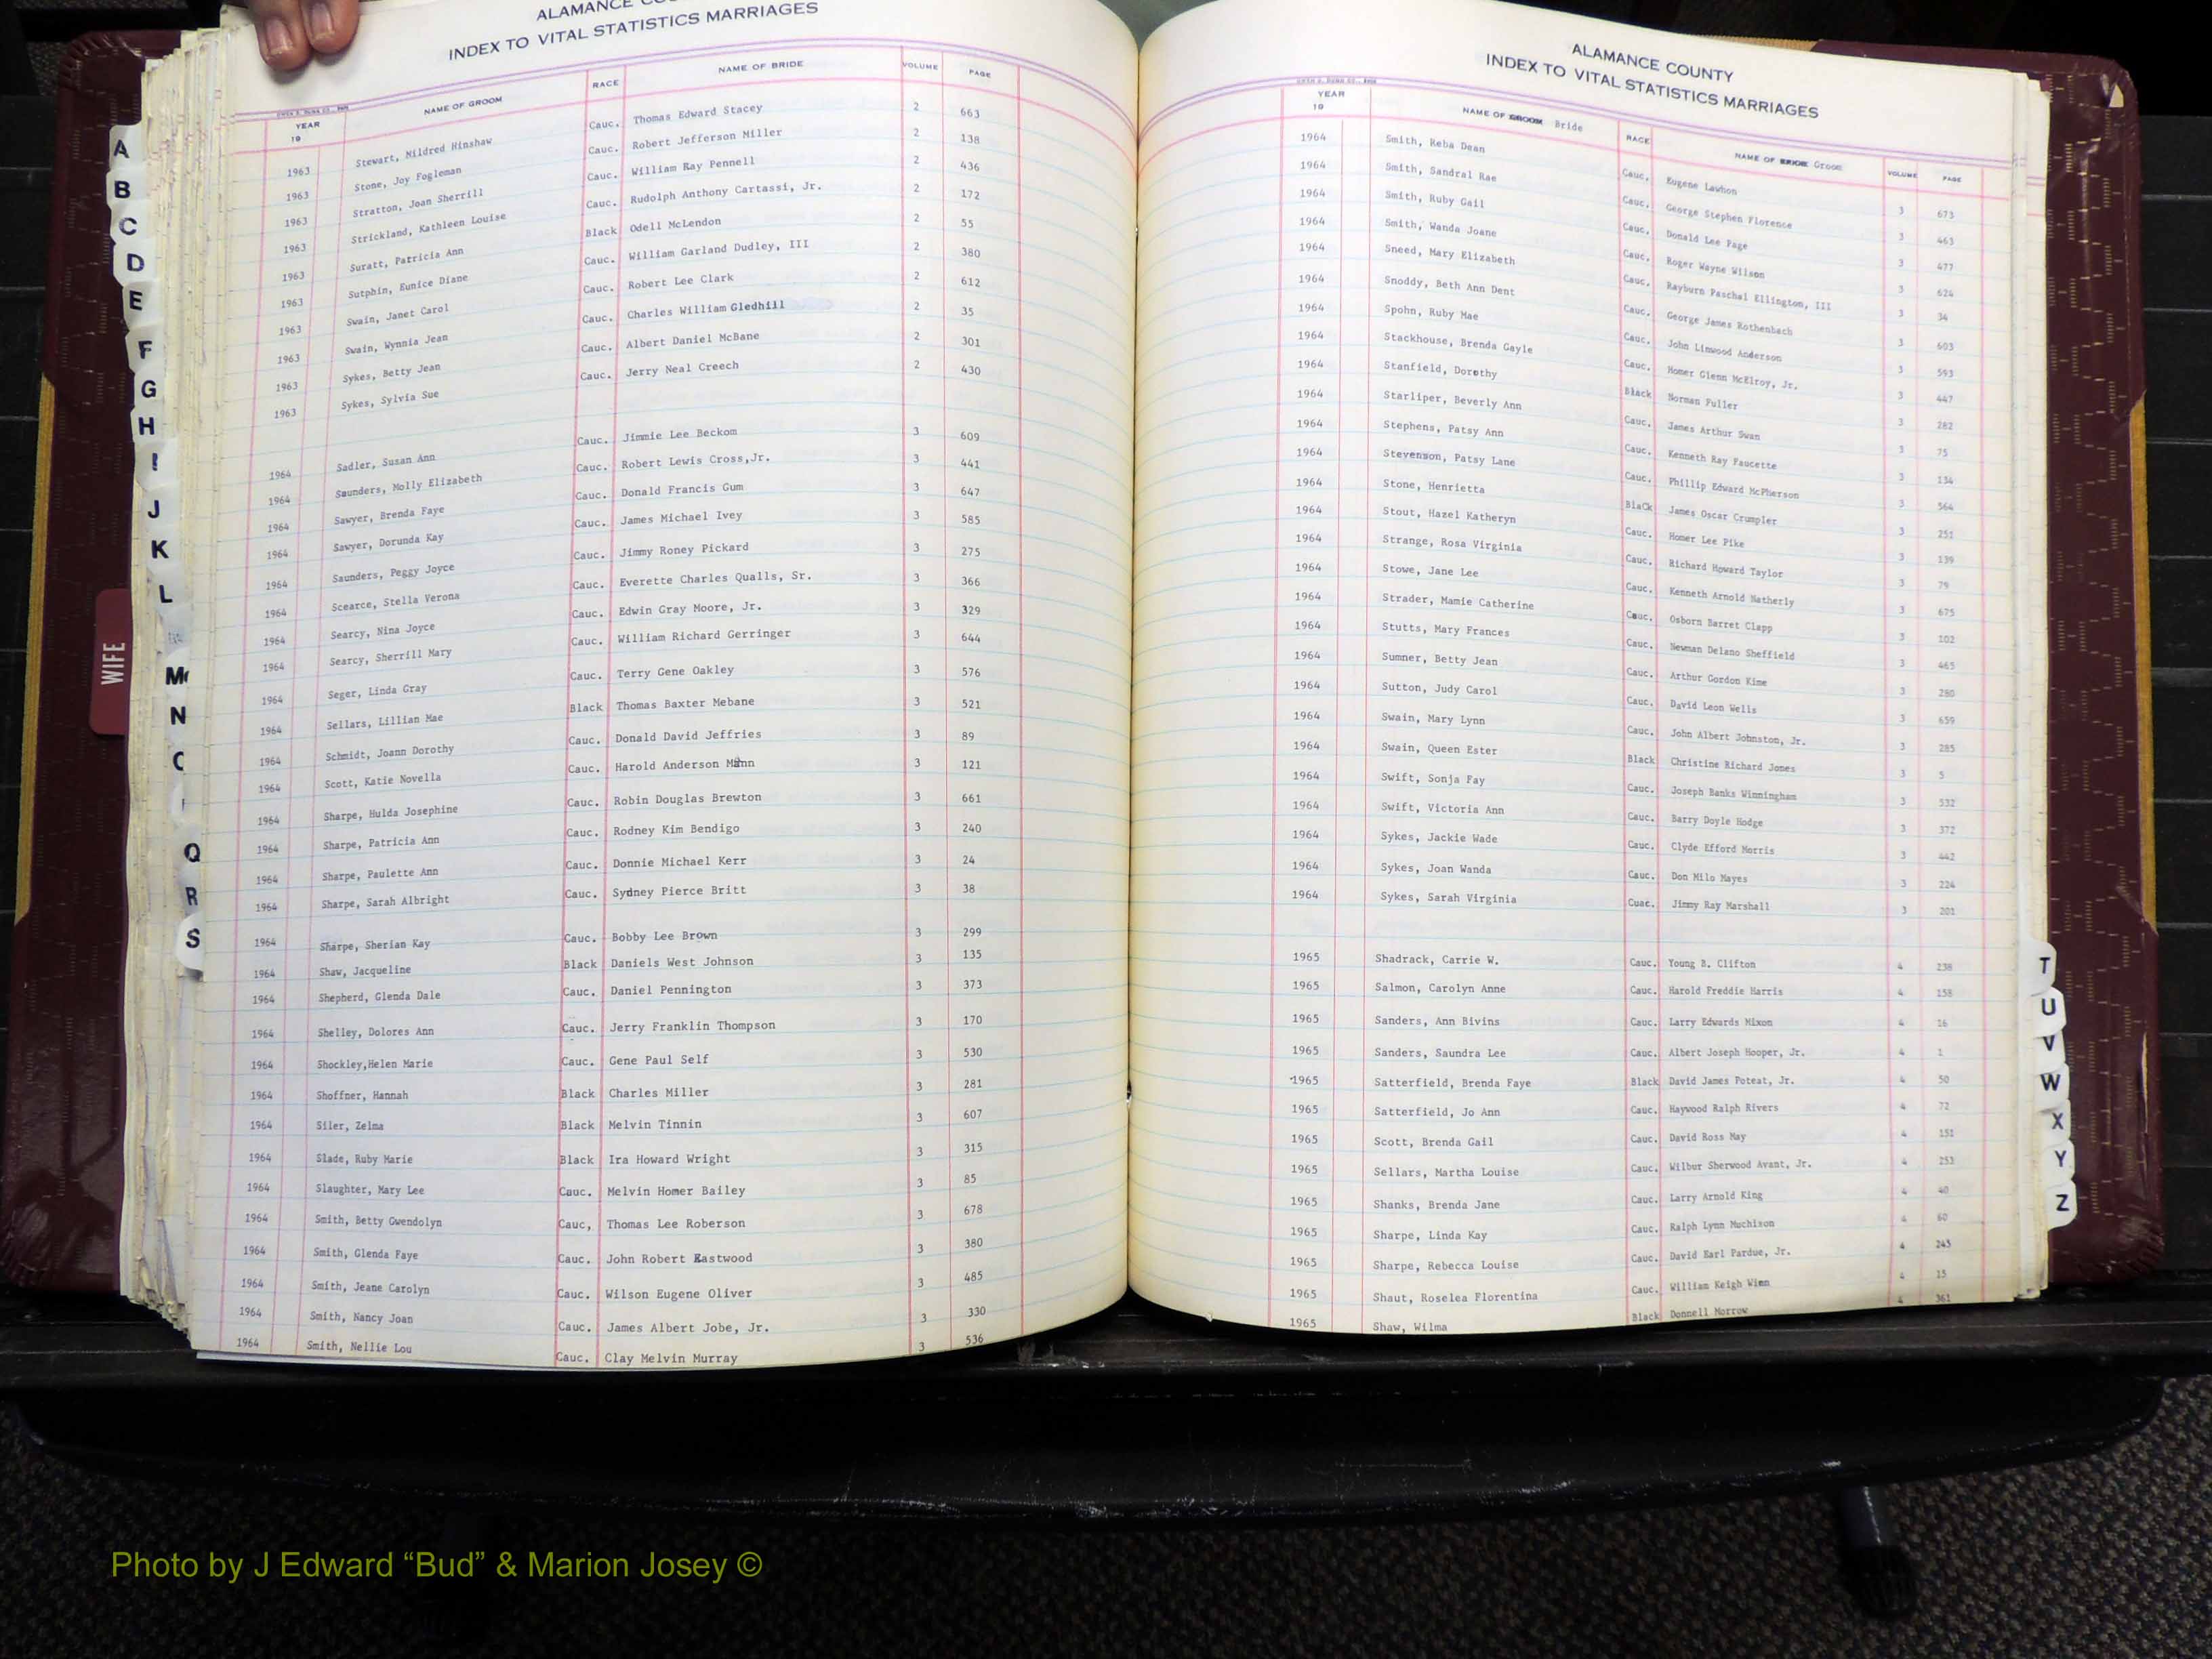 ALAMANCE
INDEX TO VITAL STATISTICS MARRIAGES
YEAR 19 NAME OF GROOM RACE NAME OF BRIDE VOLUME PAGE
1963 Stewart, Mildred Hinshaw Cauc. Thomas Edward Stacey 2 663
1963 Stone, Joy Fogleman Cauc. Robert Jefferson Miller 2 138
1963 Stratton, Joan Sherrill Cauc. William Ray Pennell 2 436
1963 Strickland, Kathleen Louise Cauc. Rudolph Anthony Cartassi, Jr. 2 172
1963 Suratt, Patricia Ann Black Odell McLendon 2 55
1963 Sutphin, Eunice Diane Cauc. William Garland Dudley, III 2 380
1963 Swain, Janet Carol Cauc. Robert Lee Clark 2 612
1963 Swain, Wynnia Jean Cauc. Charles William Gledhill 2 35
1963 Sykes, Betty Jean Cauc. Albert Daniel McBane 2 301
1963 Sykes, Sylvia Sue Cauc. Jerry Neal Creech 2 430
1964 Sadler, Susan Ann Cauc. Jimmie Lee Beckom 3 609
1964 Saunders, Molly Elizabeth Cauc. Robert Lewis Cross,Jr. 3 441
1964 Sawyer, Brenda Faye Cauc. Donald Francis Gum 3 647
1964 Sawyer, Dorunda Kay Cauc. James Michael Ivey 3 585
1964 Saunders, Peggy Joyce Cauc. Jimmy Roney Pickard 3 275
1964 Scearce, Stella Verona Cauc. Everette Charles Qualls, Sr. 3 366
1964 Searcy, Nina Joyce Cauc. Edwin Gray Moore, Jr. 3 329
1964 Searcy, Sherrill Mary Cauc. William Richard Gerringer 3 644
1964 Seger, Linda Gray Cauc. Terry Gene Oakley 3 576
1964 Sellars, Lillian Mae Black Thomas Baxter Mebane 3 521
1964 Schmidt, Joann Dorothy Cauc. Donald David Jeffries 3 89
1964 Scott, Katie Novella Cauc. Harold Anderson Mann 3 121
1964 Sharpe, Hulda Josephine Cauc. Robin Douglas Brewton 3 661
1964 Sharpe, Patricia Ann Cauc. Rodney Kim Bendigo 3 240
1964 Sharpe, Paulette Ann Cauc. Donnie Michael Kerr 3 24
1964 Sharpe, Sarah Albright Cauc. Sydney Pierce Britt 3 38
1964 Sharpe, Sherian Kay Cauc. Bobby Lee Brown 3 299
1964 Shaw, Jacqueline Black Daniels West Johnson 3 135
1964 Shepherd, Glenda Dale Cauc. Daniel Pennington 3 373
1964 Shelley, Dolores Ann Cauc. Jerry Franklin Thompson 3 170
1964 Shockley,Helen Marie Cauc. Gene Paul Self 3 530
1964 Shoffner, Hannah Black Charles Miller 3 281
1964 Siler, Zelma Black Melvin Tinnin 3 607
1964 Slade, Ruby Marie Black Ira Howard Wright 3 315
1964 Slaughter, Mary Lee Cauc. Melvin Homer Bailey 3 85
1964 Smith, Betty Gwendolyn Cauc, Thomas Lee Roberson 3 678
1964 Smith, Glenda Faye Cauc. John Robert Eastwood 3 380
1964 Smith, Jeane Carolyn Cauc. Wilson Eugene Oliver 3 485
1964 Smith, Nancy Joan Cauc. James Albert Jobe, Jr. 3 330
1964 Smith, Nellie Lou Cauc. Clay Melvin Murray 3 536
ALAMANCE COUNTY
INDEX TO VITAL STATISTICS MARRIAGES
YEAR 19 NAME OF GROOM Bride RACE NAME OF BRIDE Groom VOLUME PAGE
1964 Smith, Reba Dean Cauc. Eugene Lawhon 3 673
1964 Smith, Sandral Rae Cauc. George Stephen Florence 3 463
1964 Smith, Ruby Gail Cauc. Donald Lee Page 3 477
1964 Smith, Wanda Joane Cauc. Roger Wayne Wilson 3 624
1964 Sneed, Mary Elizabeth Cauc. Rayburn Paschal Ellington, III 3 34
1964 Snoddy, Beth Ann Dent Cauc. George James Rothenbach 3 603
1964 Spohn, Ruby Mae Cauc. John Linwood Anderson 3 593
1964 Stackhouse, Brenda Gayle Cauc. Homer Glenn McElroy, Jr. 3 447
1964 Stanfield, Dorothy Black Norman Fuller 3 282
1964 Starliper, Beverly Ann Cauc. James Arthur Swan 3 75
1964 Stephens, Patsy Ann Cauc. Kenneth Ray Faucette 3 134
1964 Stevenson, Patsy Lane Cauc. Phillip Edward McPherson 3 564
1964 Stone, Henrietta BlaCk James Oscar Crumpler 3 251
1964 Stout, Hazel Katheryn Cauc. Homer Lee Pike 3 139
1964 Strange, Rosa Virginia Cauc. Richard Howard Taylor 3 79
1964 Stowe, Jane Lee Cauc. Kenneth Arnold Hatherly 3 675
1964 Strader, Mamie Catherine Cauc. Osborn Barret Clapp 3 102
1964 Stutts, Mary Frances Cauc. Newman Delano Sheffield 3 465
1964 Sumner, Betty Jean Cauc. Arthur Gordon Kime 3 280
1964 Sutton, Judy Carol Cauc. David Leon Wells 3 659
1964 Swain, Mary Lynn Cauc. John Albert Johnston, Jr. 3 285
1964 Swain, Queen Ester Black Christine Richard Jones 3 5
1964 Swift, Sonja Fay Cauc. Joseph Banks Winningham 3 532
1964 Swift, Victoria Ann Cauc. Barry Doyle Hodge 3 372
1964 Sykes, Jackie Wade Cauc. Clyde Efford Morris 3 442
1964 Sykes, Joan Wanda Cauc. Don Milo Mayes 3 224
1964 Sykes, Sarah Virginia Cuac. Jimmy Ray Marshall 3 201
1965 Shadrack, Carrie W. Cauc. Young B. Clifton 4 238
1965 Salmon, Carolyn Anne Cauc. Harold Freddie Harris 4 158
1965 Sanders, Ann Bivins Cauc. Larry Edwards Nixon 4 16
1965 Sanders, Saundra Lee Cauc. Albert Joseph Hooper, Jr. 4 1
1965 Satterfield, Brenda Faye Black David James Poteat, Jr. 4 50
1965 Satterfield, Jo Ann Cauc. Haywood Ralph Rivers 4 72
1965 Scott, Brenda Gail Cauc. David Ross May 4 151
1965 Sellars, Martha Louise Cauc. Wilbur Sherwood Avant, Jr. 4 253
1965 Shanks, Brenda Jane Cauc. Larry Arnold King 4 40
1965 Sharpe, Linda Kay Cauc. Ralph Lynn Muchison 4 60
1965 Sharpe, Rebecca Louise Cauc. David Earl Pardue, Jr. 4 243
1965 Shaut, Roselea Florentina Cauc. William Keigh Winn 4 15
1965 Shaw, Wilma Black Donnell Morrow 4 361
A
B
C
D
E
F
G
H
I
J
K
L
M
N
Q
R
S
WIFE
T
U
V
W
X
Y
Z
Photo by J Edward “Bud” & Marion Josey ©